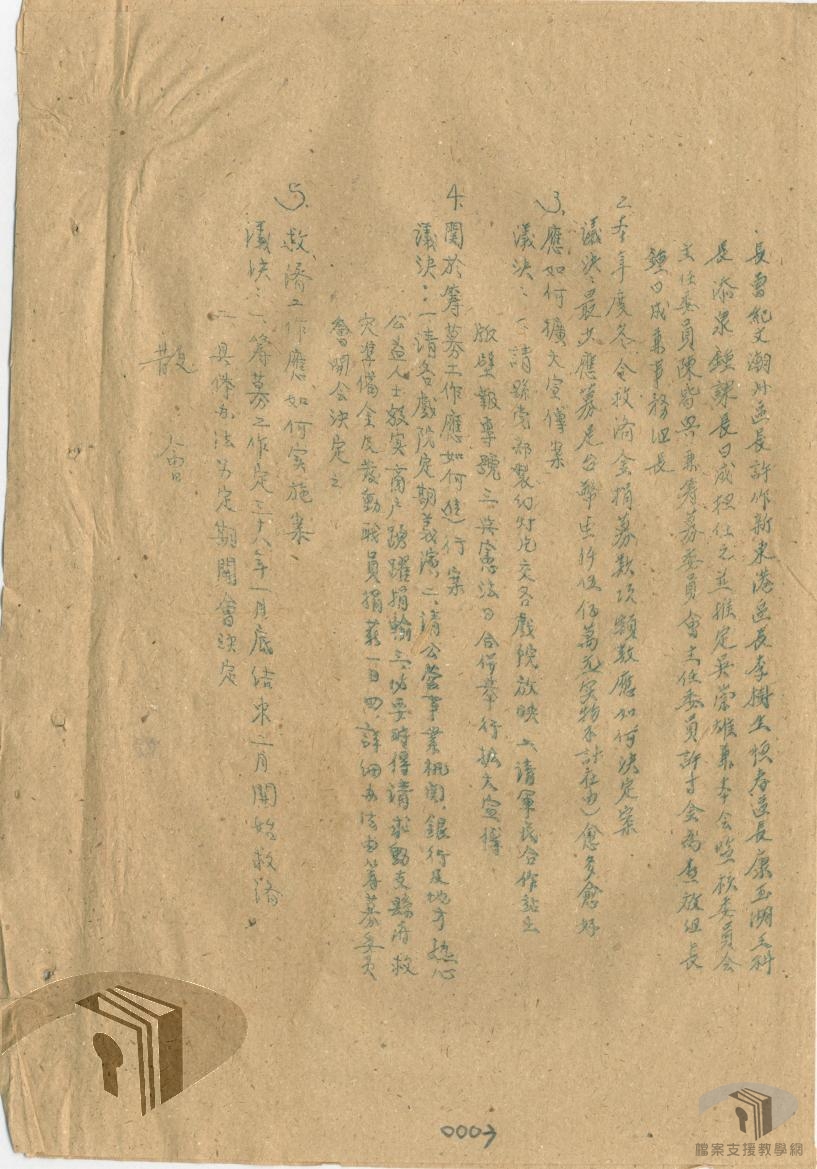 長曾紀文潮州區長許作新東港區長李樹土恒春區長康玉湖王科
長添泉鍾課長日成担任之並推定吳崇雄兼本會監核委員會
主任委員陳皆興兼籌募委員會主任委員許寸金為查放組長
鍾日成兼事務組長
2.本年度冬令救濟金捐募款項額數應如何決定案
議決:最少應募足台幣壹仟伍佰萬元(实物不計在內)愈多愈好
3、應如何擴大宣傳案
議決:一、請縣党部製幻灯片交各戲院放映 二、請軍民合作站出
版壁報專號 三、與憲法日合併舉行擴大宣傳
4.関於籌募工作應如何進行案
議決:一請各戲院定期義演 二、請公營事業機関、銀行及地方熱心
公益人士殷实商戶踴躍捐輸 三、必要時得請求動支縣府救
災準備金及發動職員捐薪一日 四、詳細办法由籌募委員
會開会決定之
5、救濟工作應如何实施案
議決:一、籌募工作定三十八年一月底結束二月開始救濟。
二、具体办法另定期開會決定
散 會
0007
檔案支援教學網